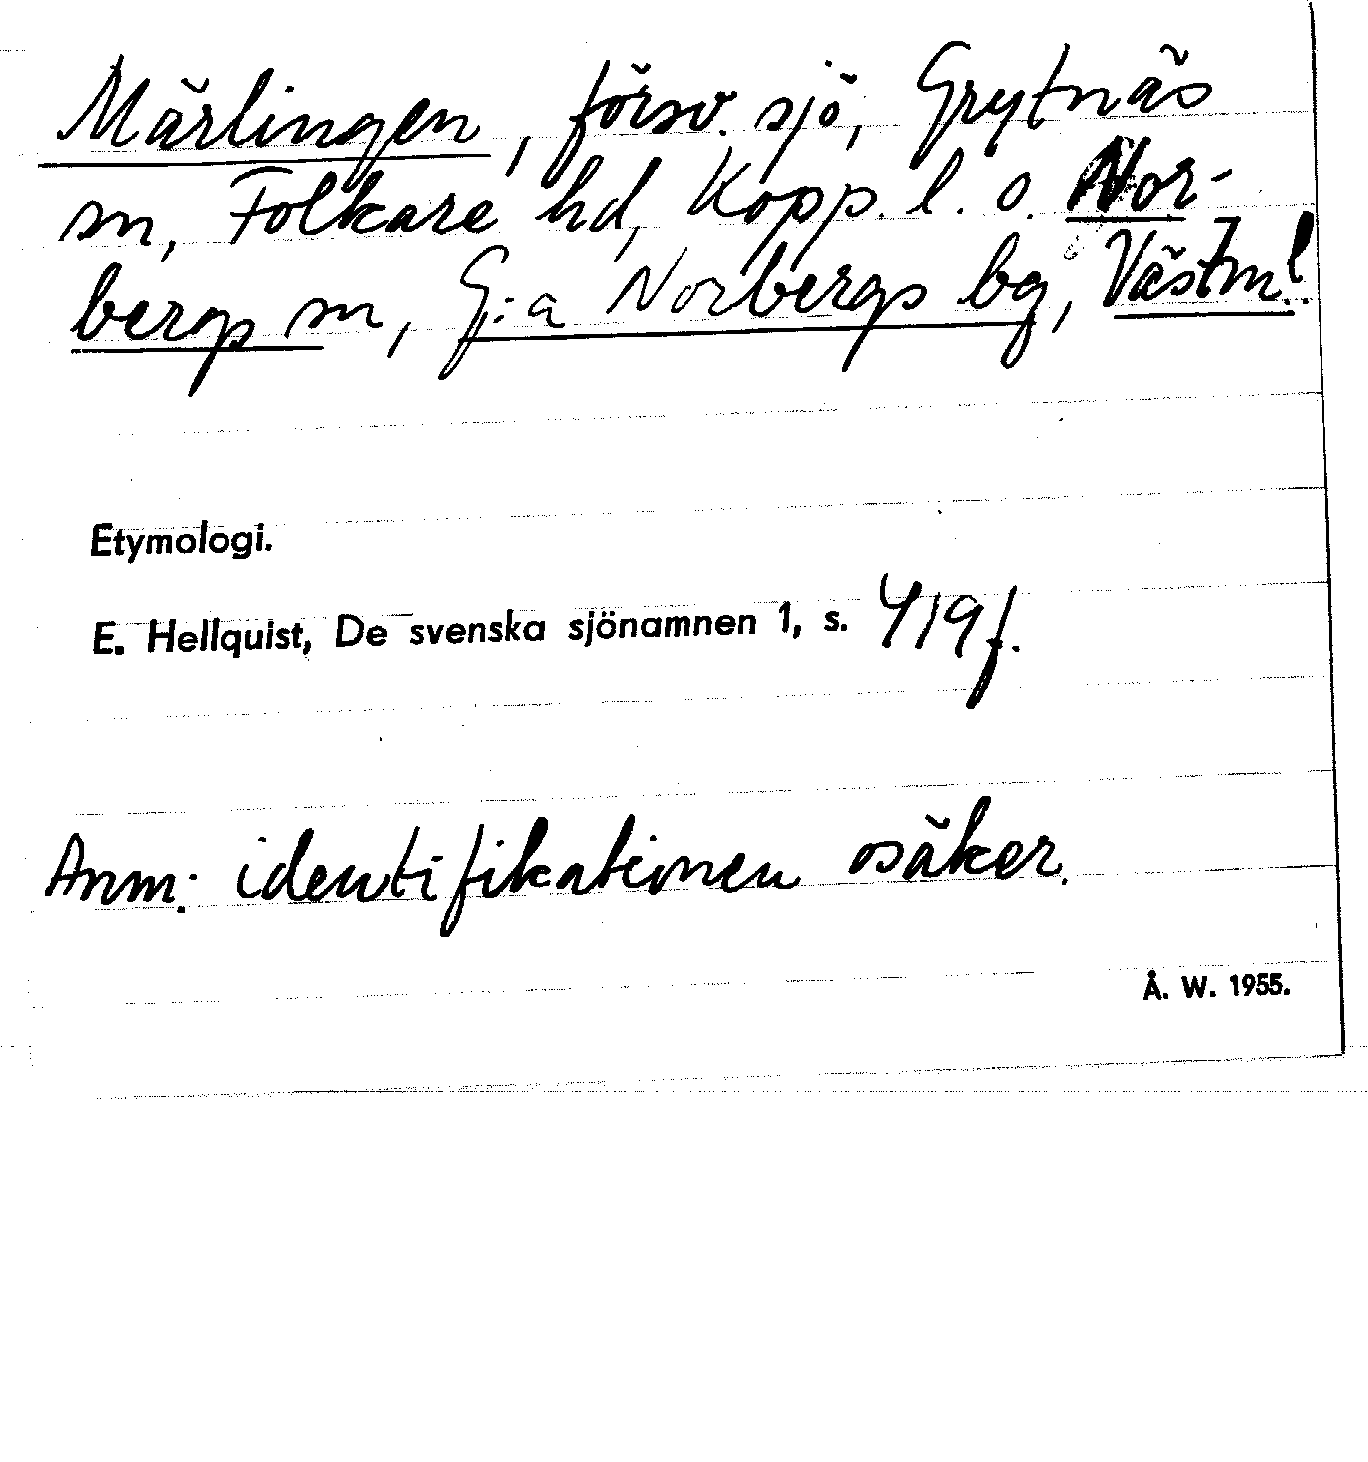 Märlingen, försv. sjö, Grytnäs
sn, Folkare hd, Kopp. l. o. Nor-
bergs sn, G:a Norbergs bg, Västm.l
Etymologi.
E. Hellquist, De svenska sjönamnen 1, s. 419 f.
Anm: identifikationen osäker.
Å. W. 1955.